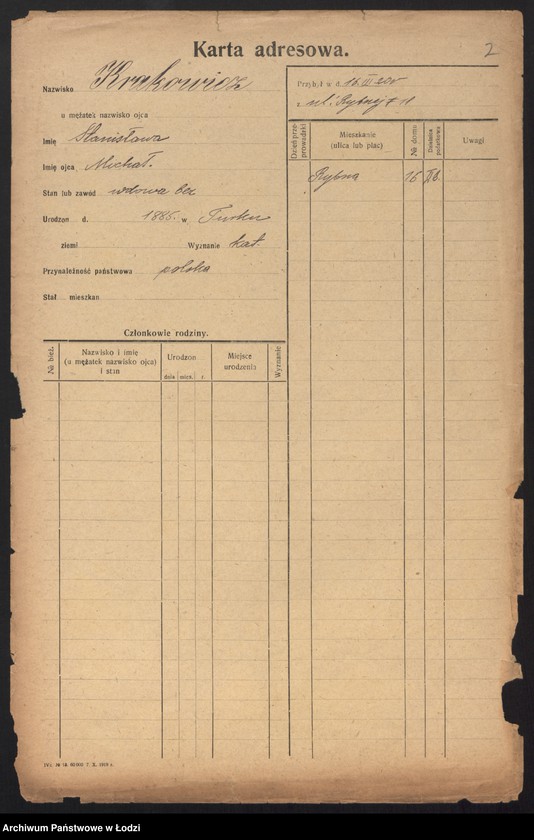 2
Karta adresowa.
Nazwisko Krakowicz
u mężatek nazwisko ojca
Imię Stanisława
Imię ojca Michał.
Stan lub zawód wdowa bez
Urodzon d. 1886. w Turku
ziemi Wyznanie kat.
Przynależność państwowa polska
Stał mieszkan
Członkowie rodziny.
№ bież.
Nazwisko i imię
(u mężatek nazwisko ojca)
i stan
Urodzon
dnia mies. r.
Miejsce
urodzenia
Wyznanie
Przybył w d. 15 III
z ul. Rybny
Dzień prze-
prowadzki
Mieszkanie
(ulica lub plac)
№ domu
Dzielnica
policyjna
Uwagi
Rybna 16
7. X. 1919 r.
Archiwum Państwowe w Łodzi